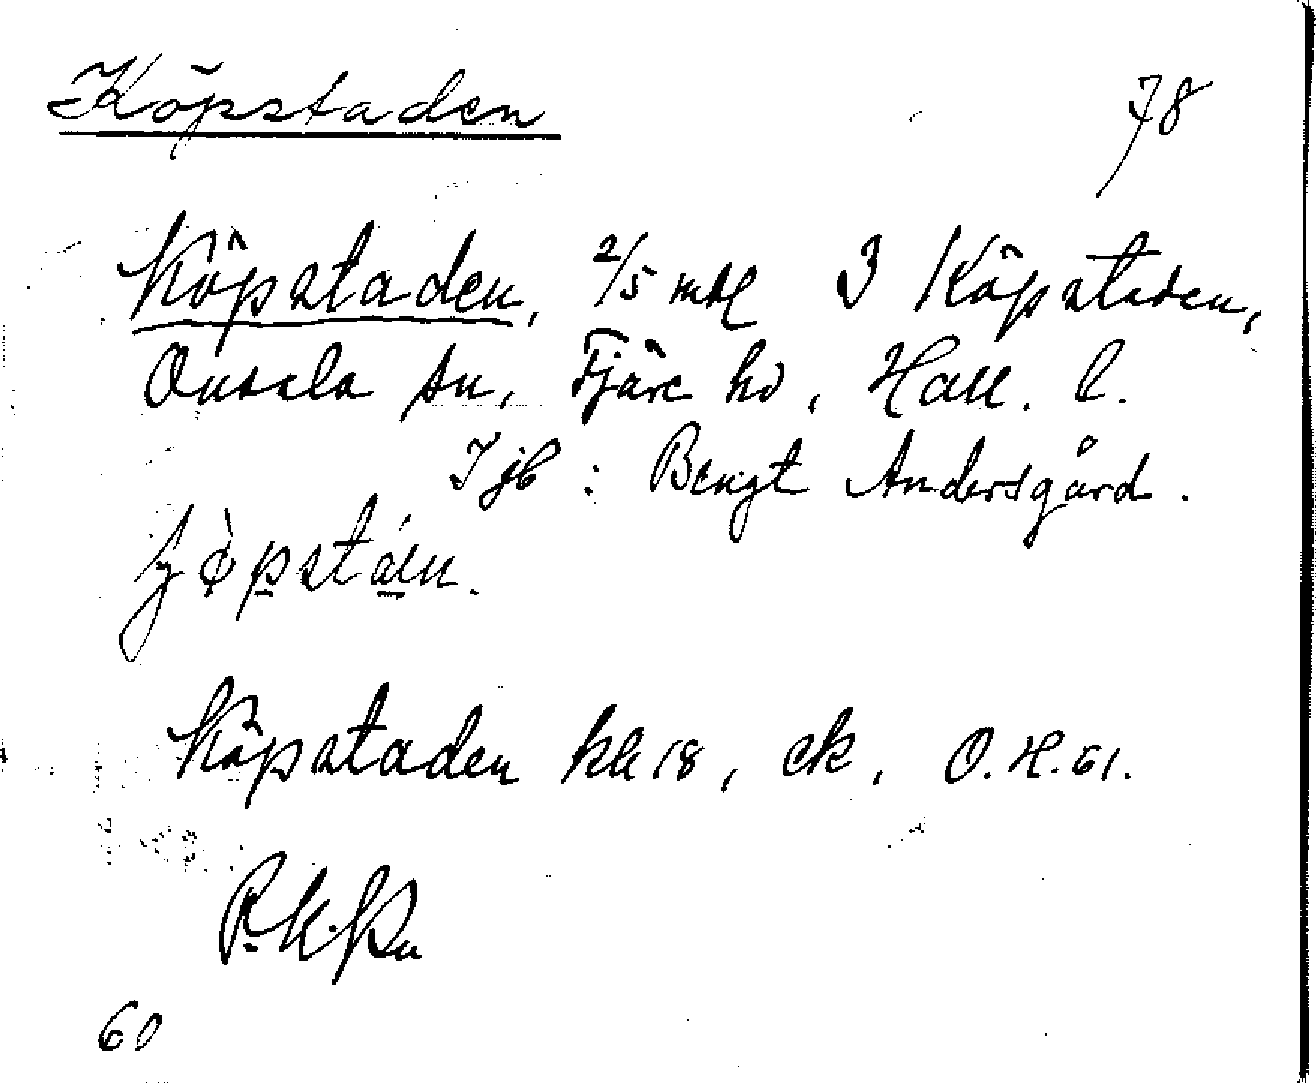 Köpstaden 78
Köpstaden, 2/5 mtl 3 Köpstaden,
Onsala sn, Fjäre hd, Hall. l.
Ijb: Bengt Andersgård.
Köpstaden kk 18, ek, O.H. 61.
60